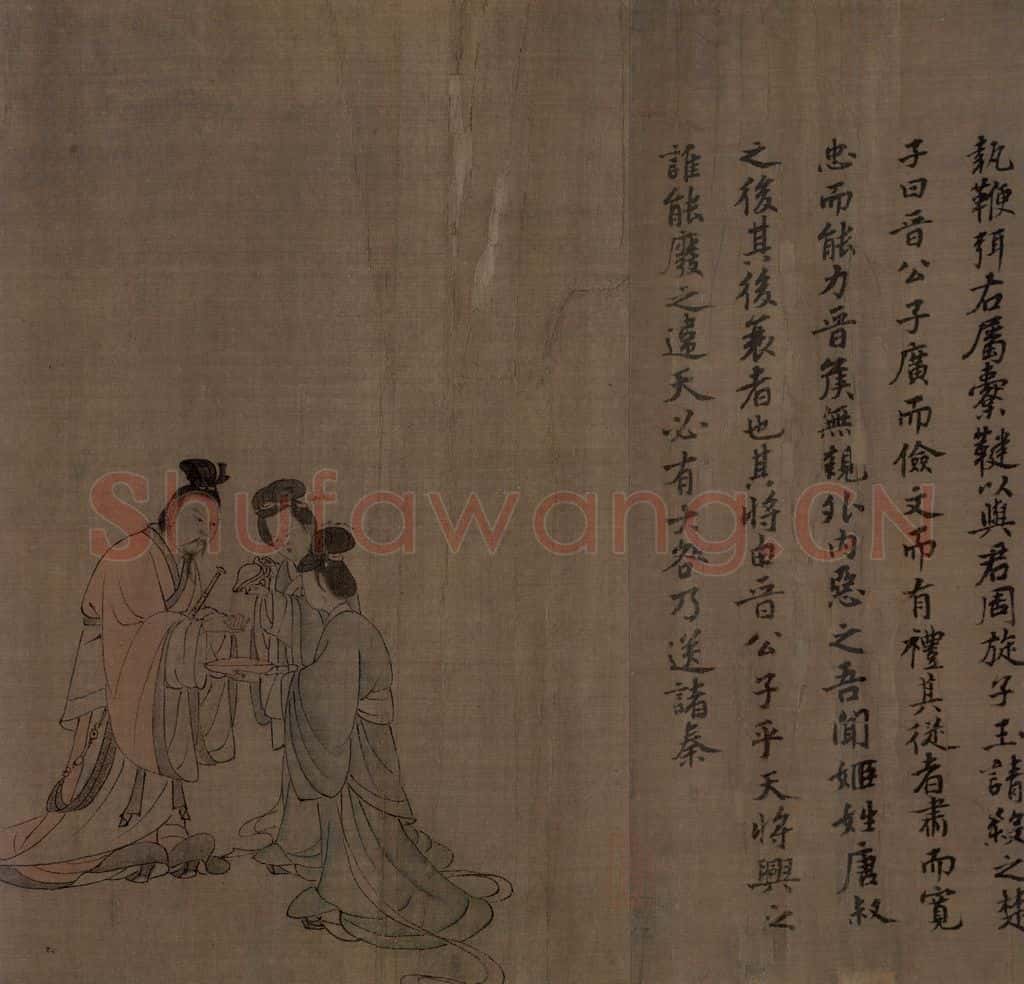 執鞭弭右屬櫜鞬以與君周旋子玉請殺之楚
子曰晉公子廣而儉文而有禮其從者肅而寬
忠而能力晉侯無親外内惡之吾聞姬姓唐叔
之後其後衰者也其將由晉公子乎天將興之
誰能廢之違天必有大咎乃送諸秦
Shufawang.CN